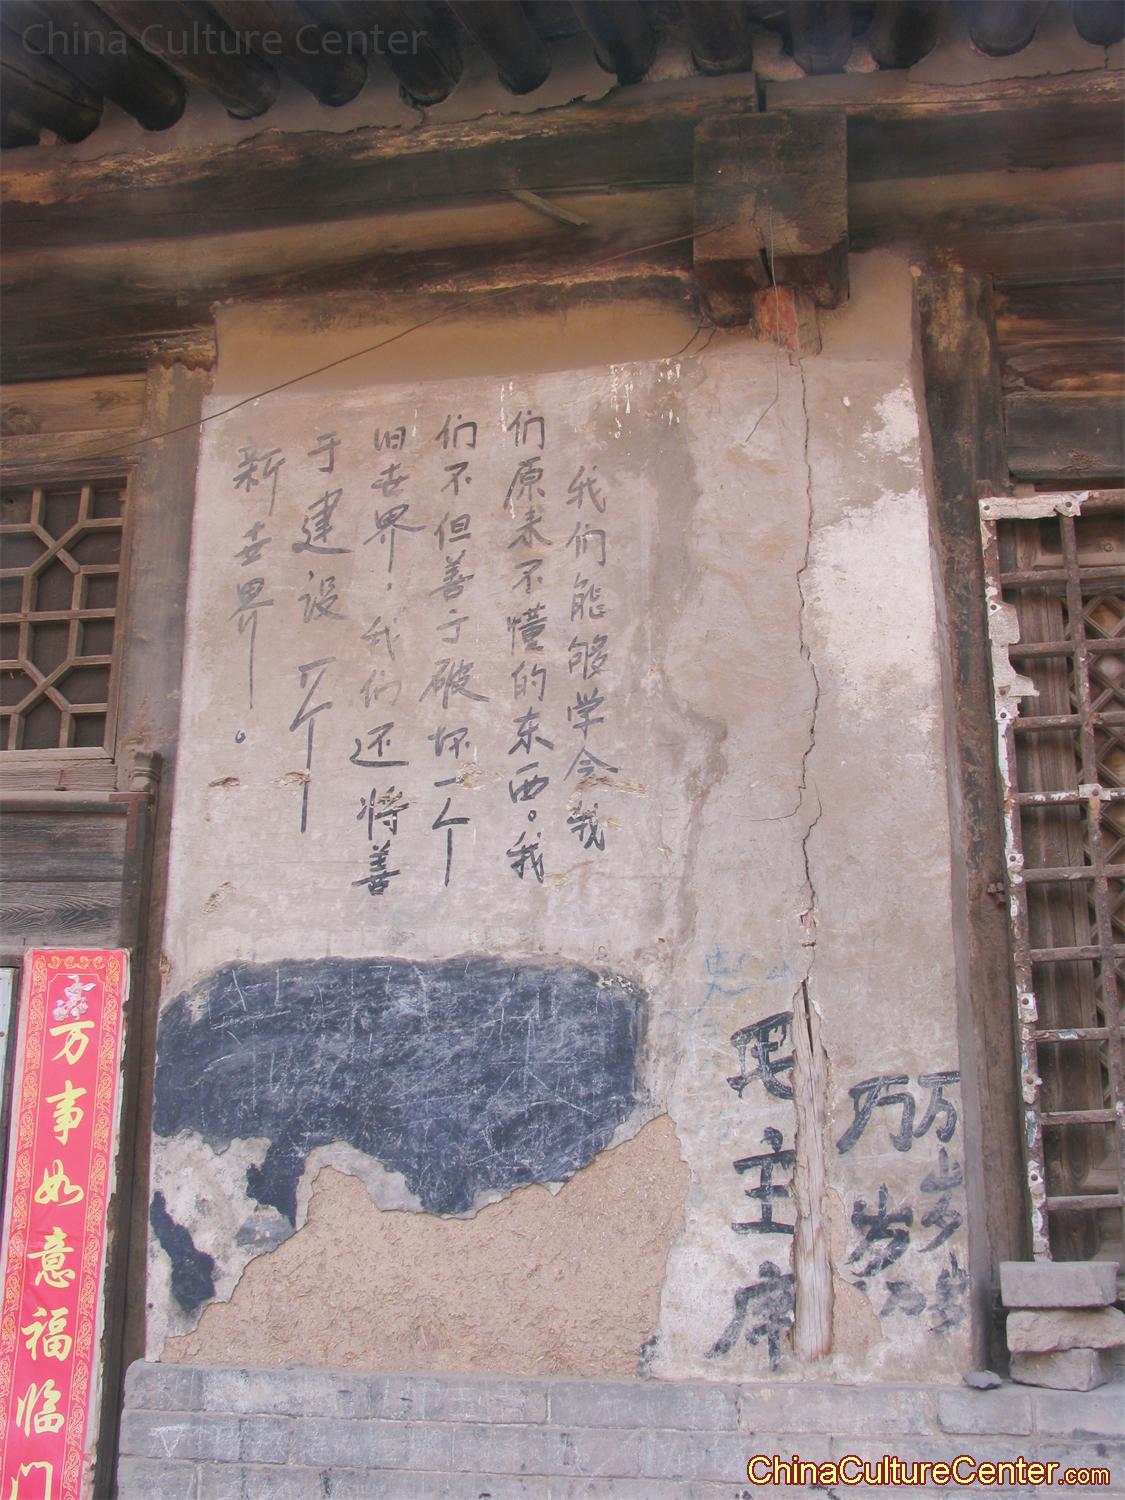 China Culture Center
我们能够学会我
们原来不懂的东西。我
们不但善于破坏一个
旧世界，我们还将善
于建设一个
新世界。
主席
万岁
万岁
万事如意福临门
ChinaCultureCenter.com